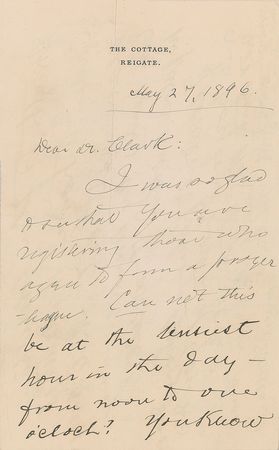 THE COTTAGE,
REIGATE.
May 27, 1896.
Dear Dr. Clark:
I was so glad
to see that you are
registering those who
agree to form a prayer
-league. Can not this
be at the busiest
hour in the day –
from noon to one
o'clock? You know